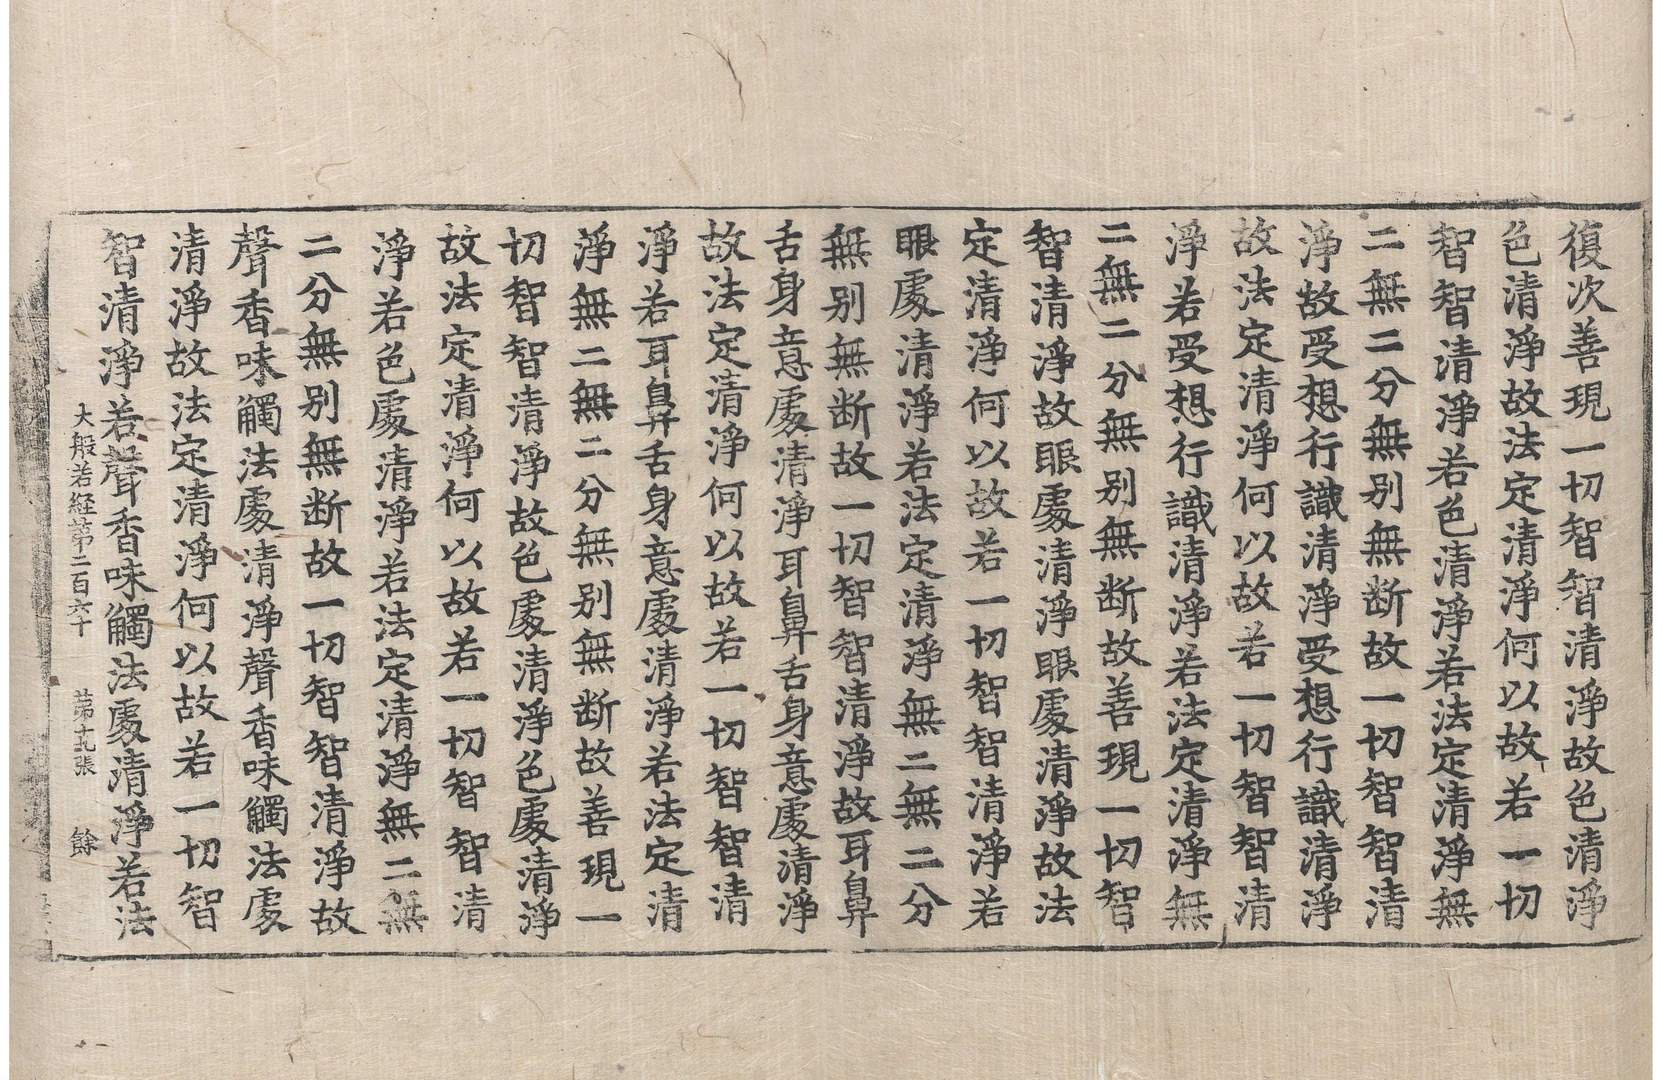 復次善現一切智智清淨故色清淨
色清淨故法定清淨何以故若一切
智智清淨若色清淨若法定清淨無
二無二分無别無断故一切智智清
淨故受想行識清淨受想行識清淨
故法定清淨何以故若一切智智清
淨若受想行識清淨若法定清淨無
二無二分無别無断故善現一切智
智清淨故眼處清淨眼處清淨故法
定清淨何以故若一切智智清淨若
眼處清淨若法定清淨無二無二分
無别無断故一切智智清淨故耳鼻
舌身意處清淨耳鼻舌身意處清淨
故法定清淨何以故若一切智智清
淨若耳鼻舌身意處清淨若法定清
淨無二無二分無别無断故善現一
切智智清淨故色處清淨色處清淨
故法定清淨何以故若一切智智清
淨若色處清淨若法定清淨無二無
二分無别無断故一切智智清淨故
聲香味觸法處清淨聲香味觸法處
清淨故法定清淨何以故若一切智
智清淨若聲香味觸法處清淨若法
大般若経第二百六十 第十九張 餘